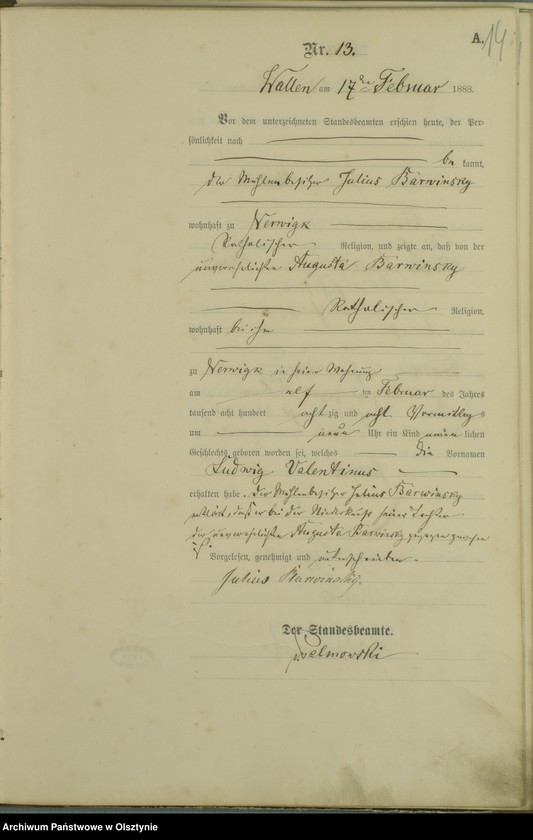 A. 14
Nr. 13.
Wallen am 17ten Februar 1888.
Vor dem unterzeichneten Standesbeamten erschien heute, der Per-
sönlichkeit nach
be kannt,
der Mühlenbesitzer Julius Barwinsky
wohnhaft zu Nerwigk
Katholischer Religion, und zeigte an, daß von der
unverehelichten Augusta Barwinsky
Katholischer Religion,
wohnhaft bei ihm
zu Nerwigk in seiner Wohnung
am elf ten Februar des Jahres
tausend acht hundert acht zig und acht Vormittags
um neun Uhr ein Kind männ lichen
Geschlechts geboren worden sei, welches die Vornamen
Ludwig Valentinus
erhalten habe. Der Mühlenbesitzer Julius Barwinsky
erklärt, daß er bei der Niederkunft seiner Tochter
der unverehelichten Augusta Barwinsky zugegen gewesen
ist.
Vorgelesen, genehmigt und unterschrieben.
Julius Barwinsky.
Der Standesbeamte.
Archiwum Państwowe w Olsztynie